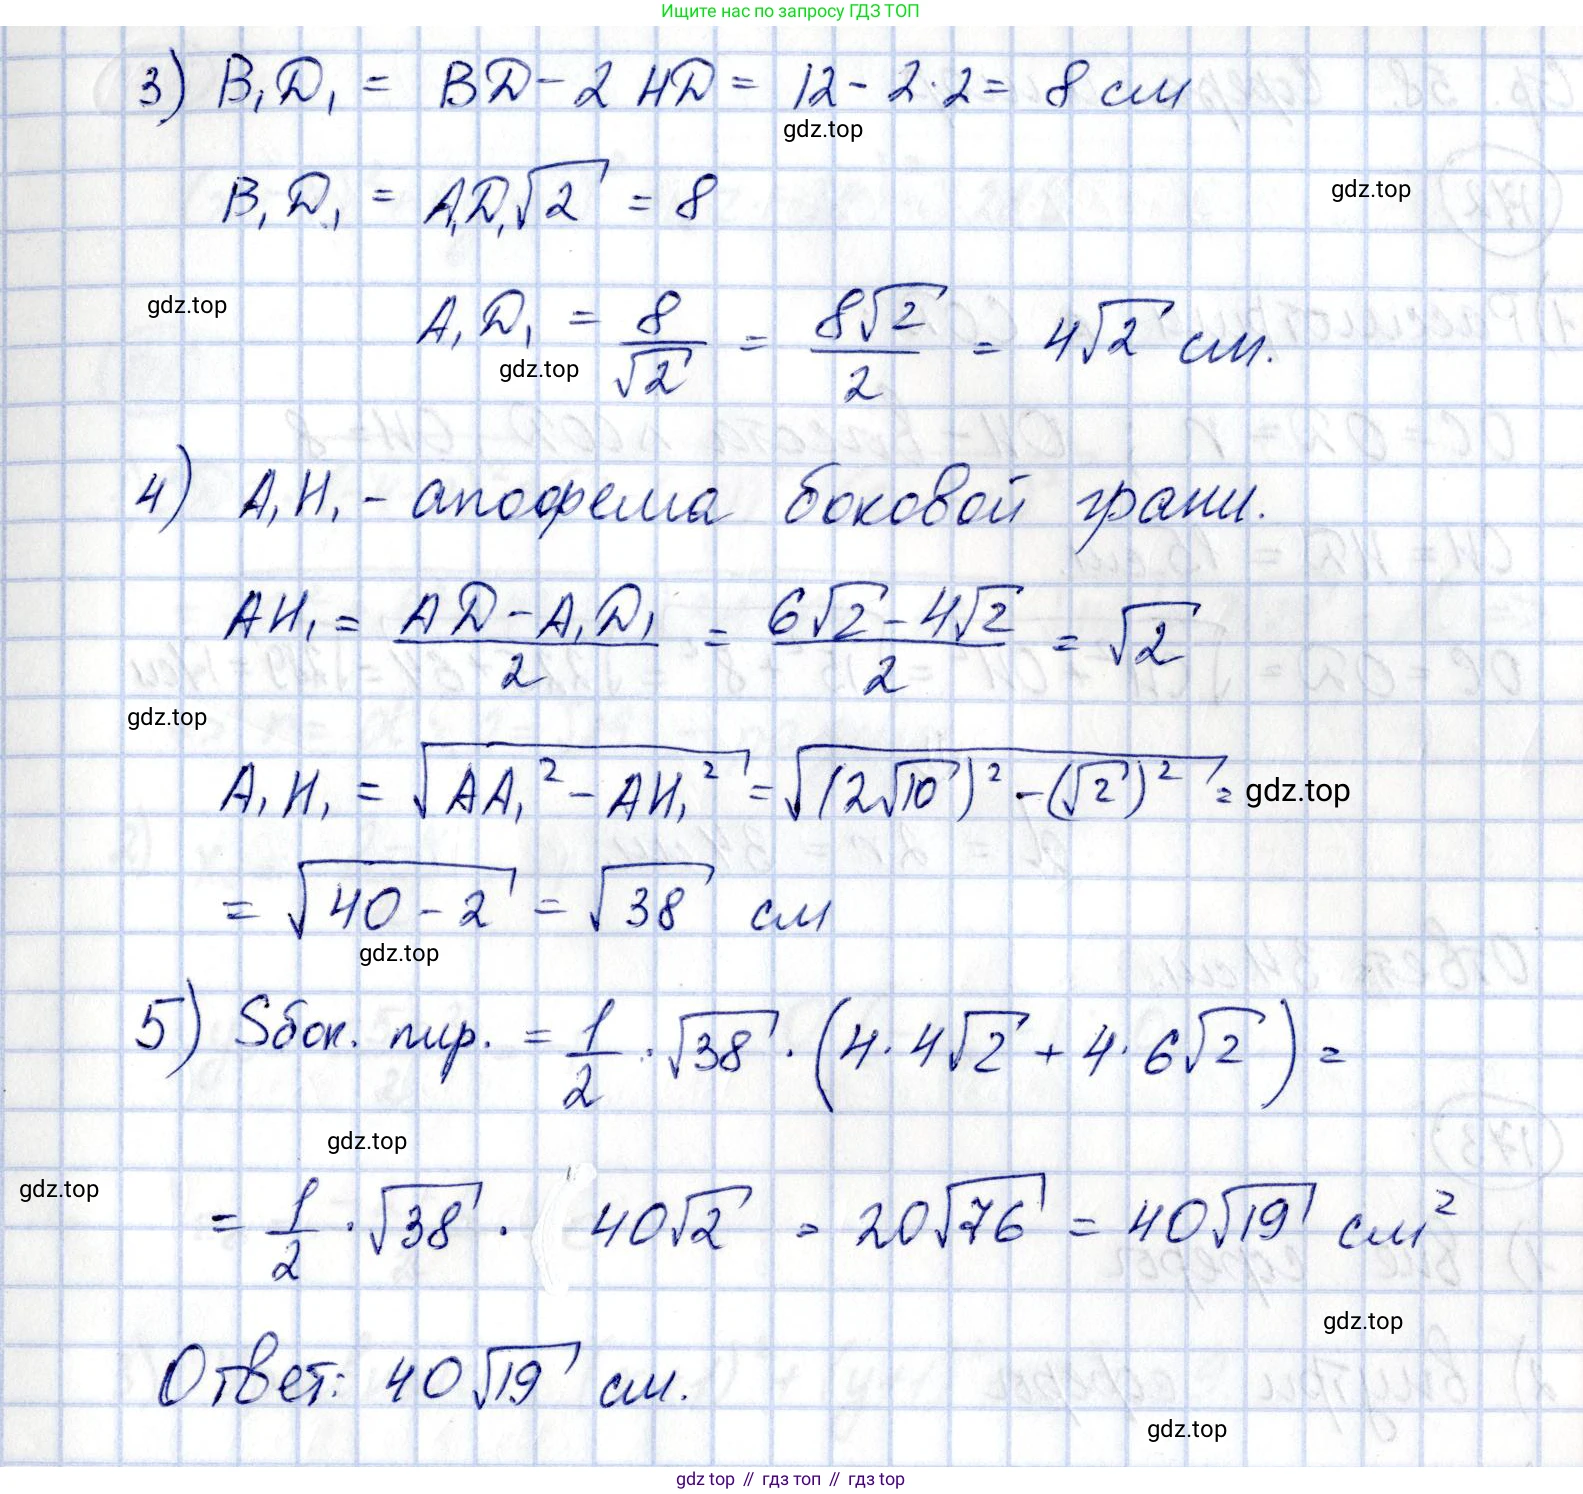 Ищите нас по запросу ГДЗ ТОП
3) B₁D₁ = BD - 2HD = 12 - 2·2 = 8 см
gdz.top
B₁D₁ = A₁D₁√2 = 8
gdz.top
gdz.top
A₁D₁ = 8/√2 = 8√2/2 = 4√2 см.
gdz.top
4) A₁H₁ - апофема боковой грани.
AH₁ = (AD - A₁D₁)/2 = (6√2 - 4√2)/2 = √2
gdz.top
A₁H₁ = √(AA₁² - AH₁²) = √((2√10)² - (√2)²) =
gdz.top
= √(40 - 2) = √38 см
gdz.top
5) Sбок. пир. = 1/2 · √38 · (4·4√2 + 4·6√2) =
gdz.top
gdz.top
= 1/2 · √38 · 40√2 = 20√76 = 40√19 см²
gdz.top
Ответ: 40√19 см.
gdz.top
gdz top // гдз топ // гдз top